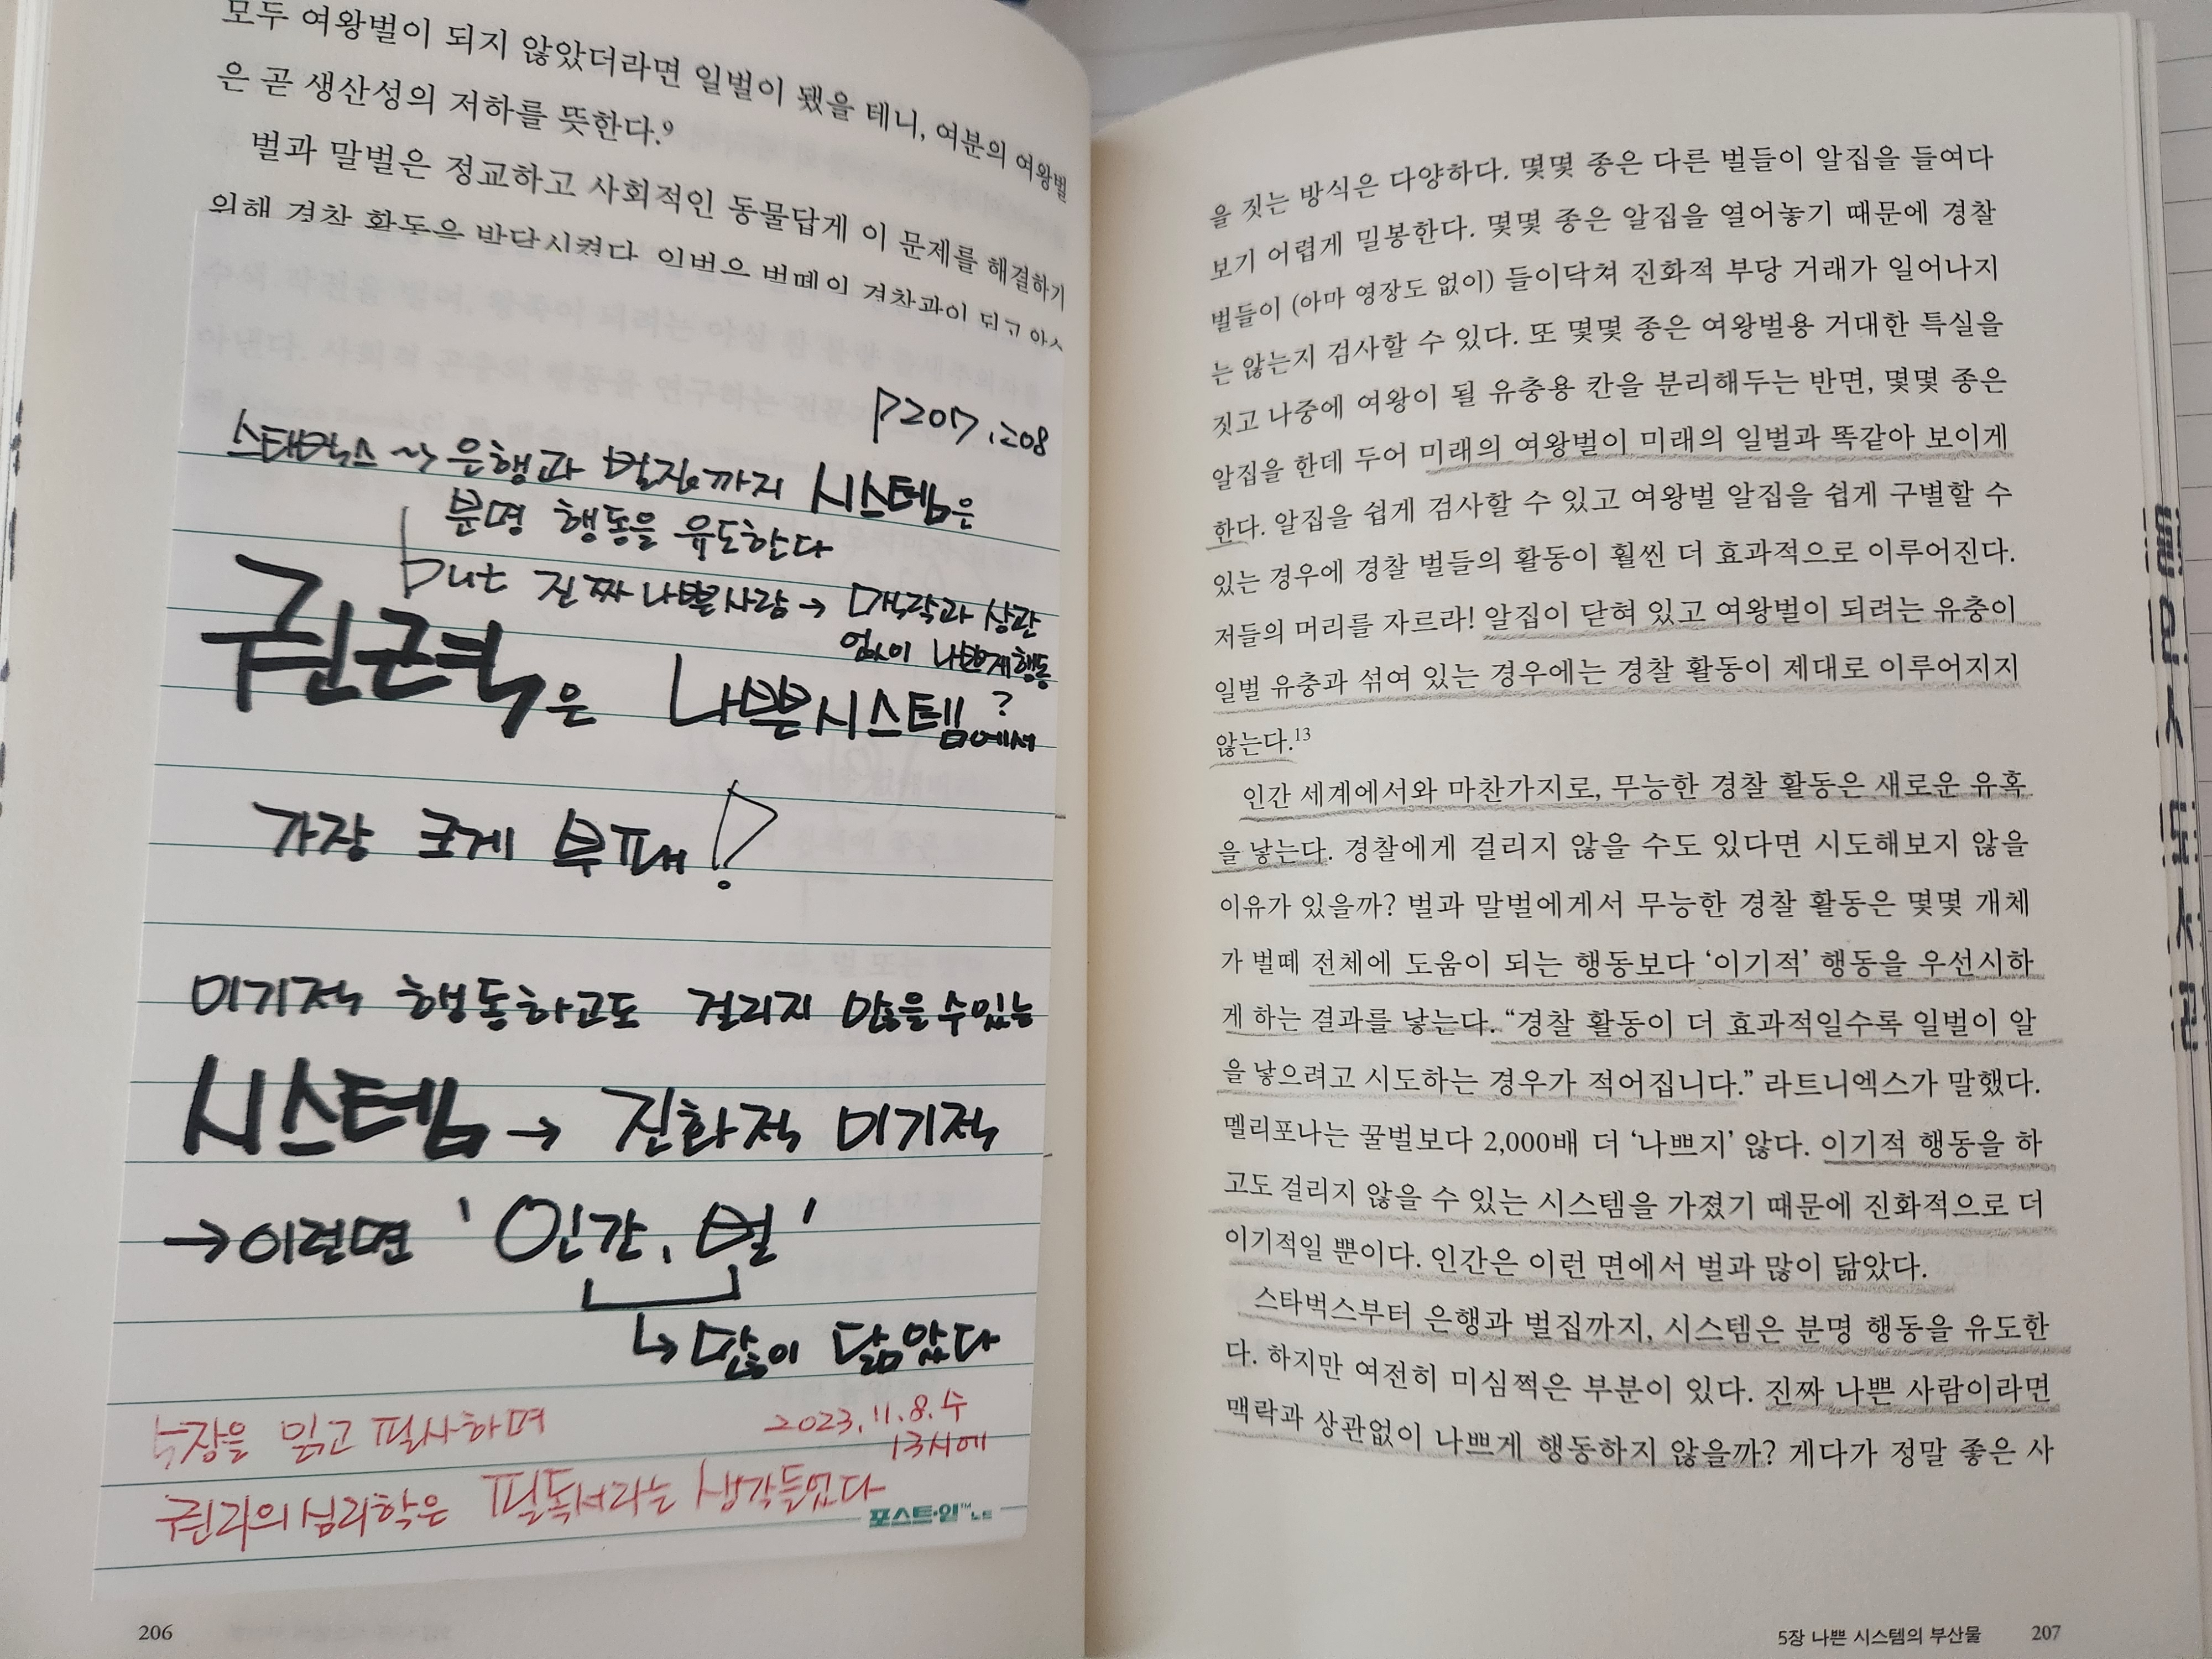 모두 여왕벌이 되지 않았더라면 일벌이 됐을 테니, 여분의 여왕벌
은 곧 생산성의 저하를 뜻한다.⁹
벌과 말벌은 정교하고 사회적인 동물답게 이 문제를 해결하기
위해 경찰 활동을 발달시켰다. 일벌은 벌떼의 경찰관이 되고
P207, 208
스태벅스 ~> 은행과 벌집까지 시스템은
분명 행동을 유도한다
but 진짜 나쁜사람 → 맥락과 상관
없이 나쁘게 행동
?
권력은 나쁜시스템에서
가장 크게 부패!
이기적 행동하고도 걸리지 않을 수 있는
시스템 → 진화적 이기적
→ 이런면 '인간, 벌'
↳ 많이 닮았다
5장을 읽고 필사하며
2023. 11. 8. 수
13시에
권력의 심리학은 필독서라는 생각들었다
포스트·잇™ 노트
206
을 짓는 방식은 다양하다. 몇몇 종은 다른 벌들이 알집을 들여다
보기 어렵게 밀봉한다. 몇몇 종은 알집을 열어놓기 때문에 경찰
벌들이 (아마 영장도 없이) 들이닥쳐 진화적 부당 거래가 일어나지
는 않는지 검사할 수 있다. 또 몇몇 종은 여왕벌용 거대한 특실을
짓고 나중에 여왕이 될 유충용 칸을 분리해두는 반면, 몇몇 종은
알집을 한데 두어 미래의 여왕벌이 미래의 일벌과 똑같아 보이게
한다. 알집을 쉽게 검사할 수 있고 여왕벌 알집을 쉽게 구별할 수
있는 경우에 경찰 벌들의 활동이 훨씬 더 효과적으로 이루어진다.
저들의 머리를 자르라! 알집이 닫혀 있고 여왕벌이 되려는 유충이
일벌 유충과 섞여 있는 경우에는 경찰 활동이 제대로 이루어지지
않는다.¹³
인간 세계에서와 마찬가지로, 무능한 경찰 활동은 새로운 유혹
을 낳는다. 경찰에게 걸리지 않을 수도 있다면 시도해보지 않을
이유가 있을까? 벌과 말벌에게서 무능한 경찰 활동은 몇몇 개체
가 벌떼 전체에 도움이 되는 행동보다 ‘이기적’ 행동을 우선시하
게 하는 결과를 낳는다. “경찰 활동이 더 효과적일수록 일벌이 알
을 낳으려고 시도하는 경우가 적어집니다.” 라트니엑스가 말했다.
멜리포나는 꿀벌보다 2,000배 더 ‘나쁘지’ 않다. 이기적 행동을 하
고도 걸리지 않을 수 있는 시스템을 가졌기 때문에 진화적으로 더
이기적일 뿐이다. 인간은 이런 면에서 벌과 많이 닮았다.
스타벅스부터 은행과 벌집까지, 시스템은 분명 행동을 유도한
다. 하지만 여전히 미심쩍은 부분이 있다. 진짜 나쁜 사람이라면
맥락과 상관없이 나쁘게 행동하지 않을까? 게다가 정말 좋은 사
5장 나쁜 시스템의 부산물 207